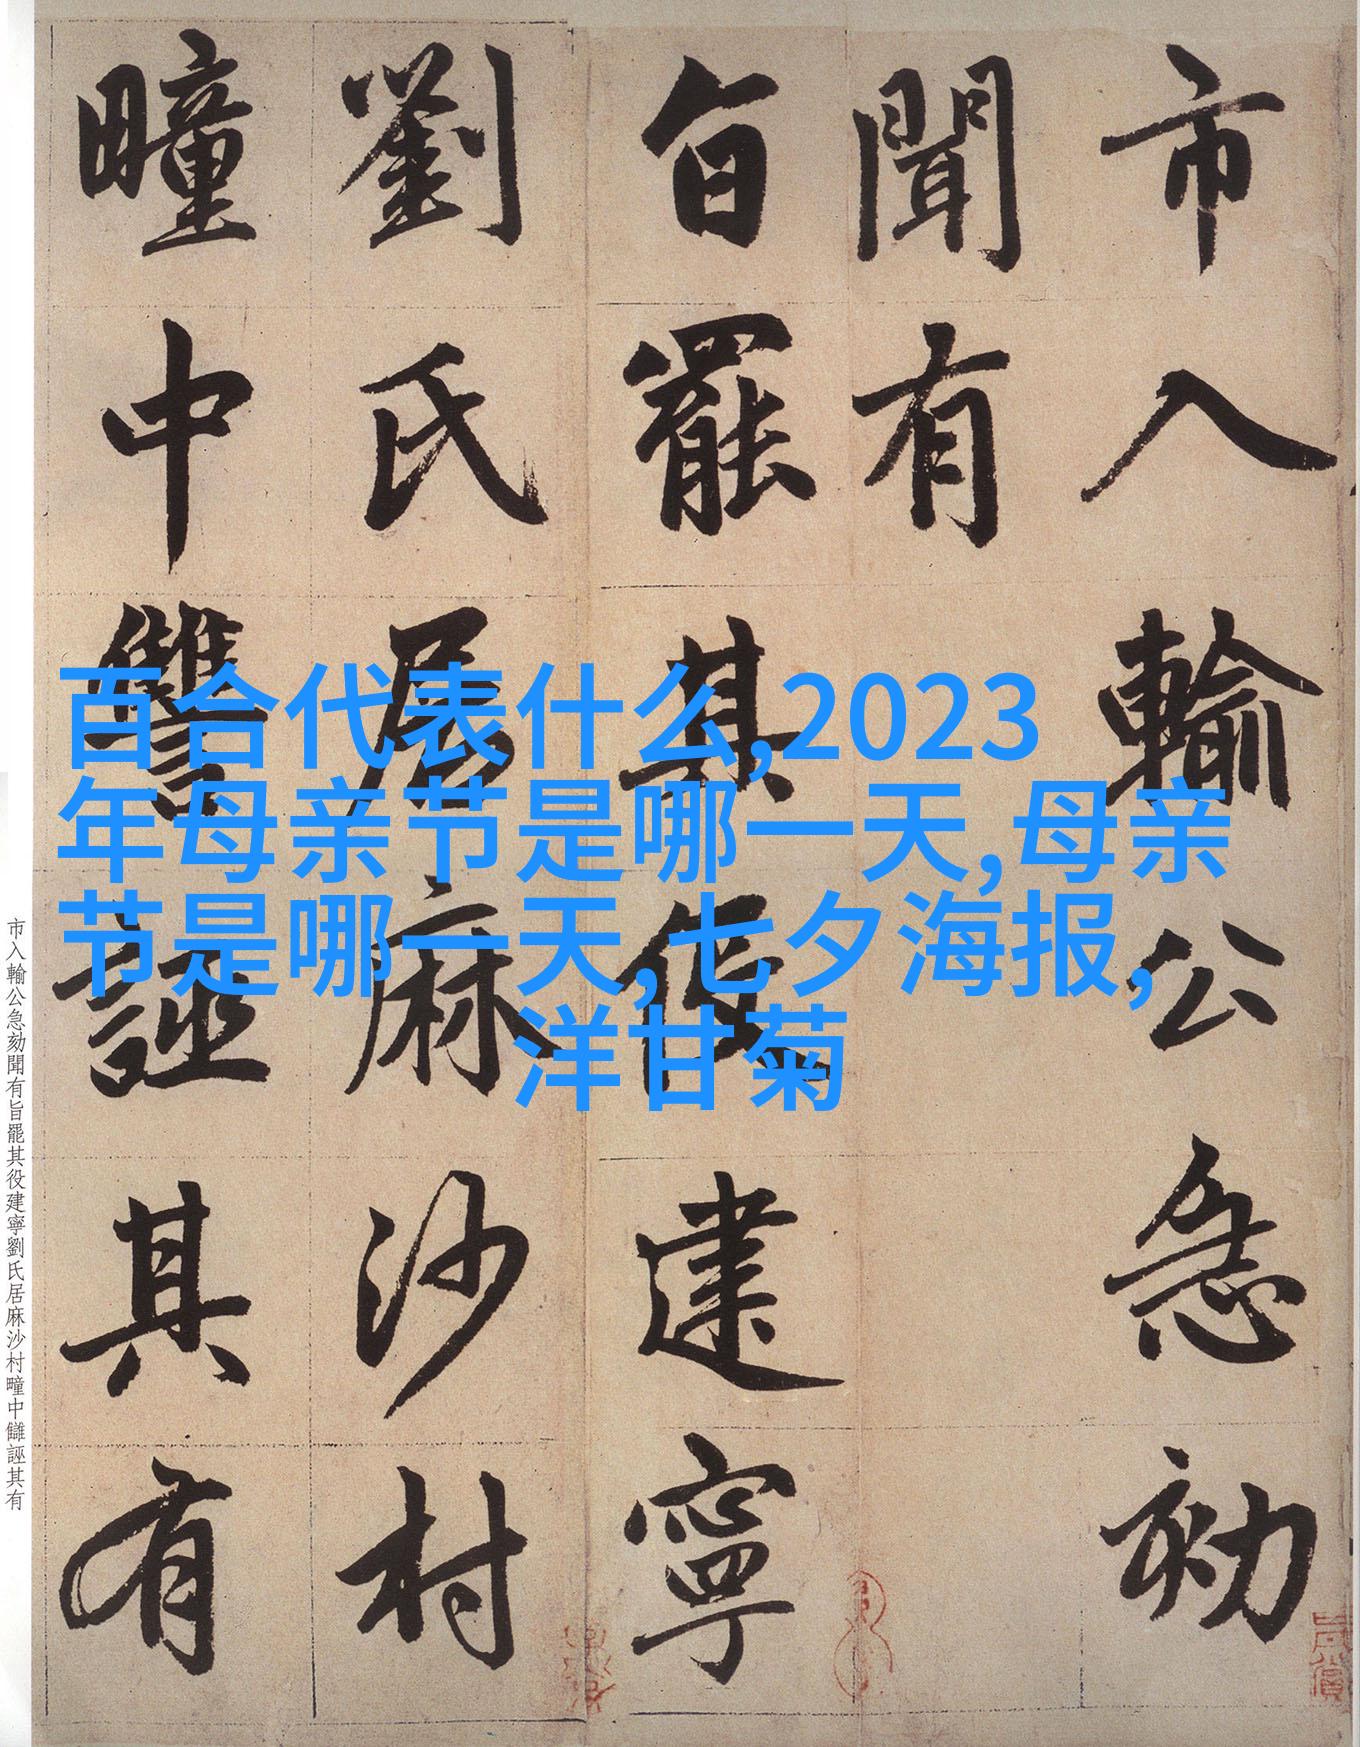 市入輸公急劾
聞有
旨罷其役建寧
劉氏居麻沙村
疃中讎誣其有
百合代表什么,2023
年母亲节是哪一天,母亲
节是哪一天,七夕海报,
洋甘菊
市入輸公急劾聞有旨罷其役建寧劉氏居麻沙村疃中讎誣其有